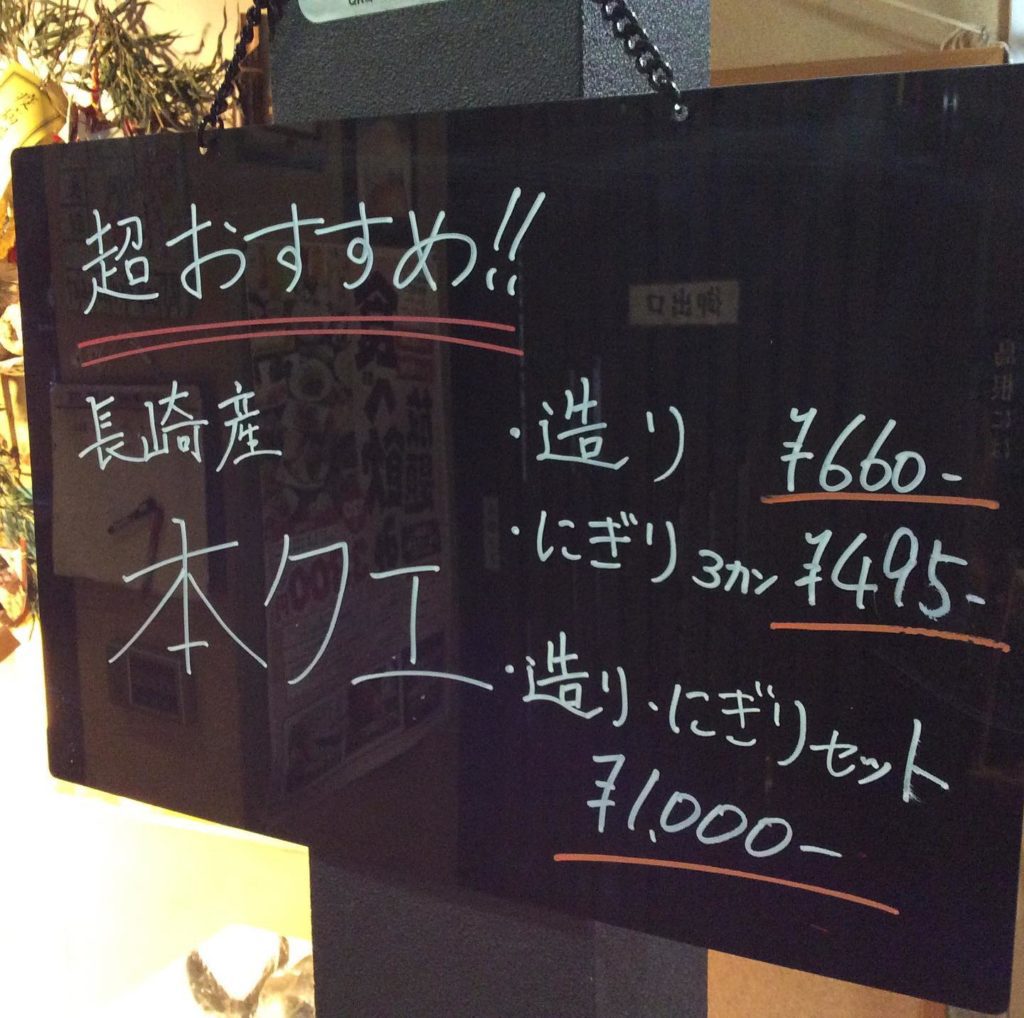 超おすすめ!!
長崎産
本クエ
・造り ¥660-
・にぎり 3カン ¥495-
・造り・にぎりセット
¥1,000-